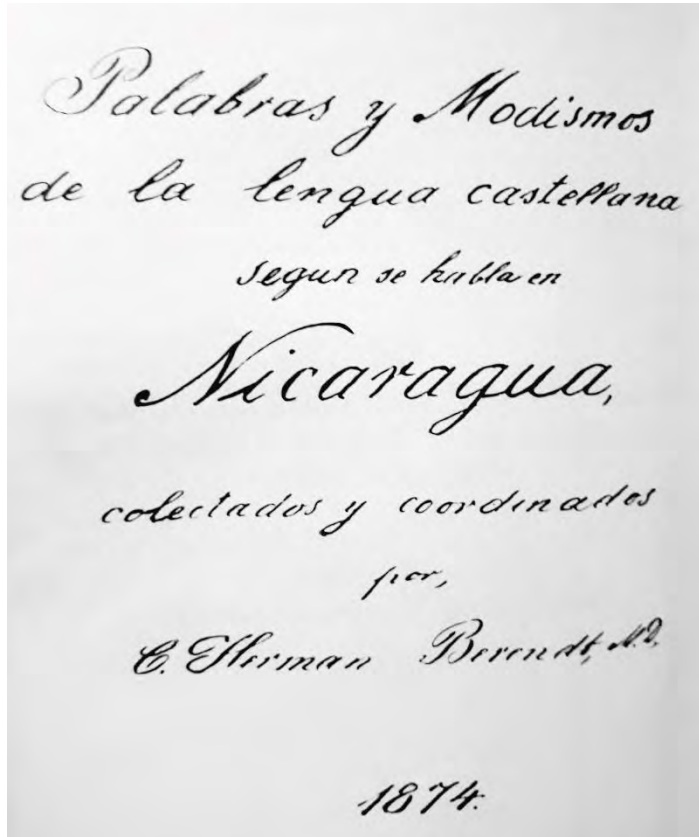 Palabras y Modismos
de la lengua castellana
segun se habla en
Nicaragua,
colectados y coordinados
por,
C. Herman Berendt, M.D.
1874.